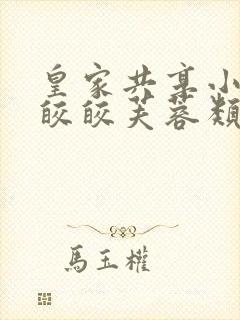 皇家共享小
皎皎芙蓉類
馬玉權